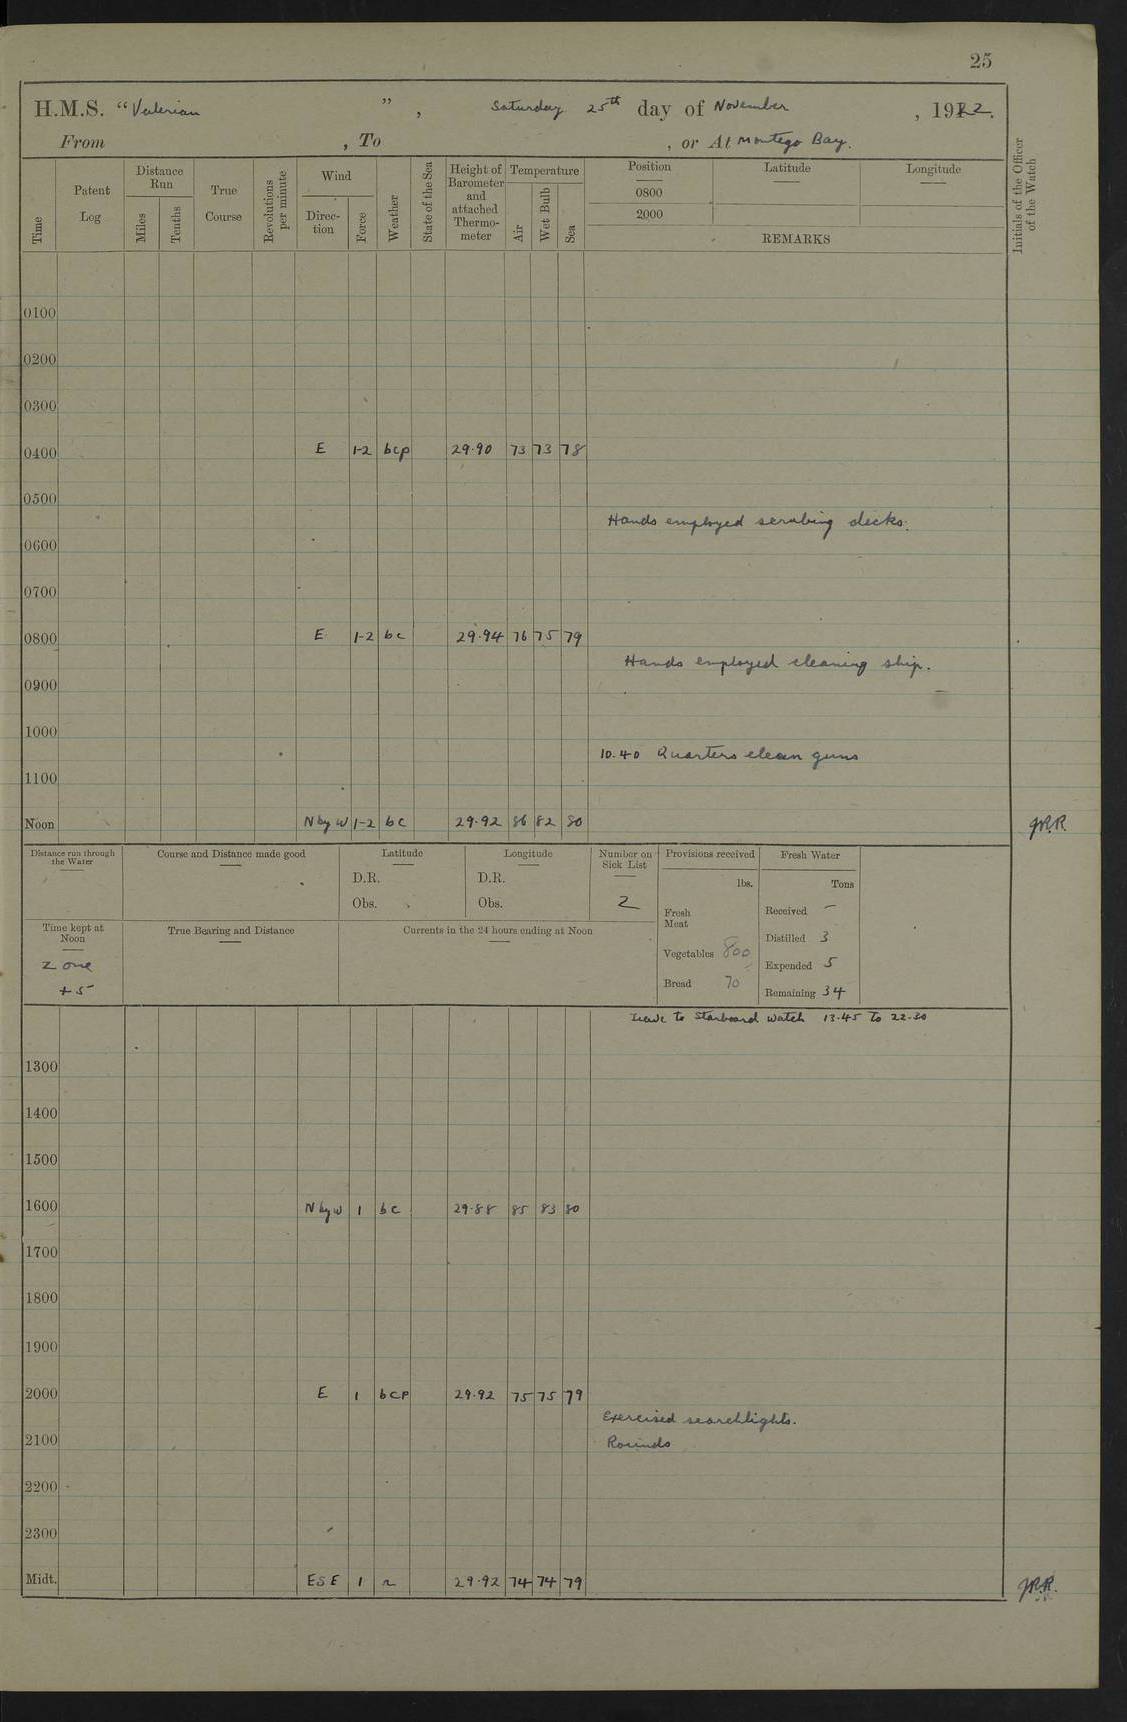 25
H.M.S. "Valerian ", Saturday 25th day of November, 1922.
From , To , or At Montego Bay.
Time
Patent Log
Distance Run
Miles
Tenths
True Course
Revolutions per minute
Wind
Direc-tion
Force
Weather
State of the Sea
Height of Barometer and attached Thermo-meter
Temperature
Air
Wet Bulb
Sea
Position Latitude Longitude
0800
2000
REMARKS
Initials of the Officer of the Watch
0100
0200
0300
0400 E 1-2 bcp 29.90 73 73 78
0500
Hands employed scrubing decks.
0600
0700
0800 E 1-2 bc 29.94 76 75 79
Hands employed cleaning ship.
0900
1000
10.40 Quarters clean guns
1100
Noon N by W 1-2 bc 29.92 86 82 80 JR.R.
Distance run through the Water
Course and Distance made good
Latitude
D.R.
Obs.
Longitude
D.R.
Obs.
Number on Sick List
2
Provisions received
lbs.
Fresh Meat
Vegetables 800
Bread 70
Fresh Water
Tons
Received -
Distilled 3
Expended 5
Remaining 34
Time kept at Noon
Zone
+5
True Bearing and Distance
Currents in the 24 hours ending at Noon
Leave to Starboard Watch 13.45 to 22.30
1300
1400
1500
1600 N by W 1 bc 29.88 85 83 80
1700
1800
1900
2000 E 1 bcp 29.92 75 75 79
Exercised searchlights.
2100 Rounds
2200
2300
Midt. ESE 1 r 29.92 74 74 79 JR.R.